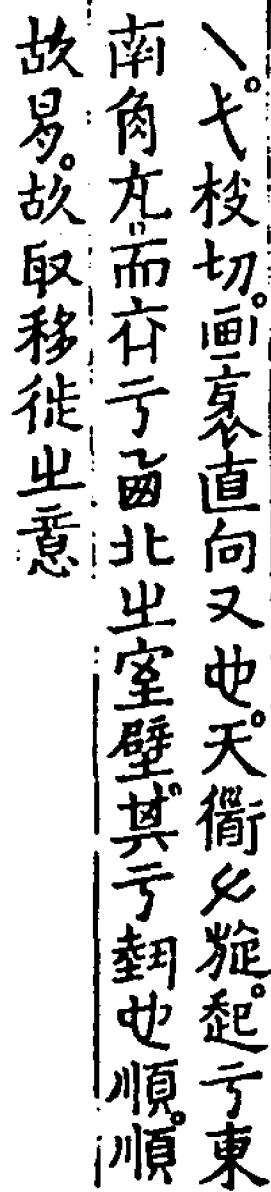 乀。弋梭切。画衺直向又也。天衜𠂇旋。起亏東
南角亢而亏𠧧北㞢室壁其亏也順。順
故易。故取移徙㞢意